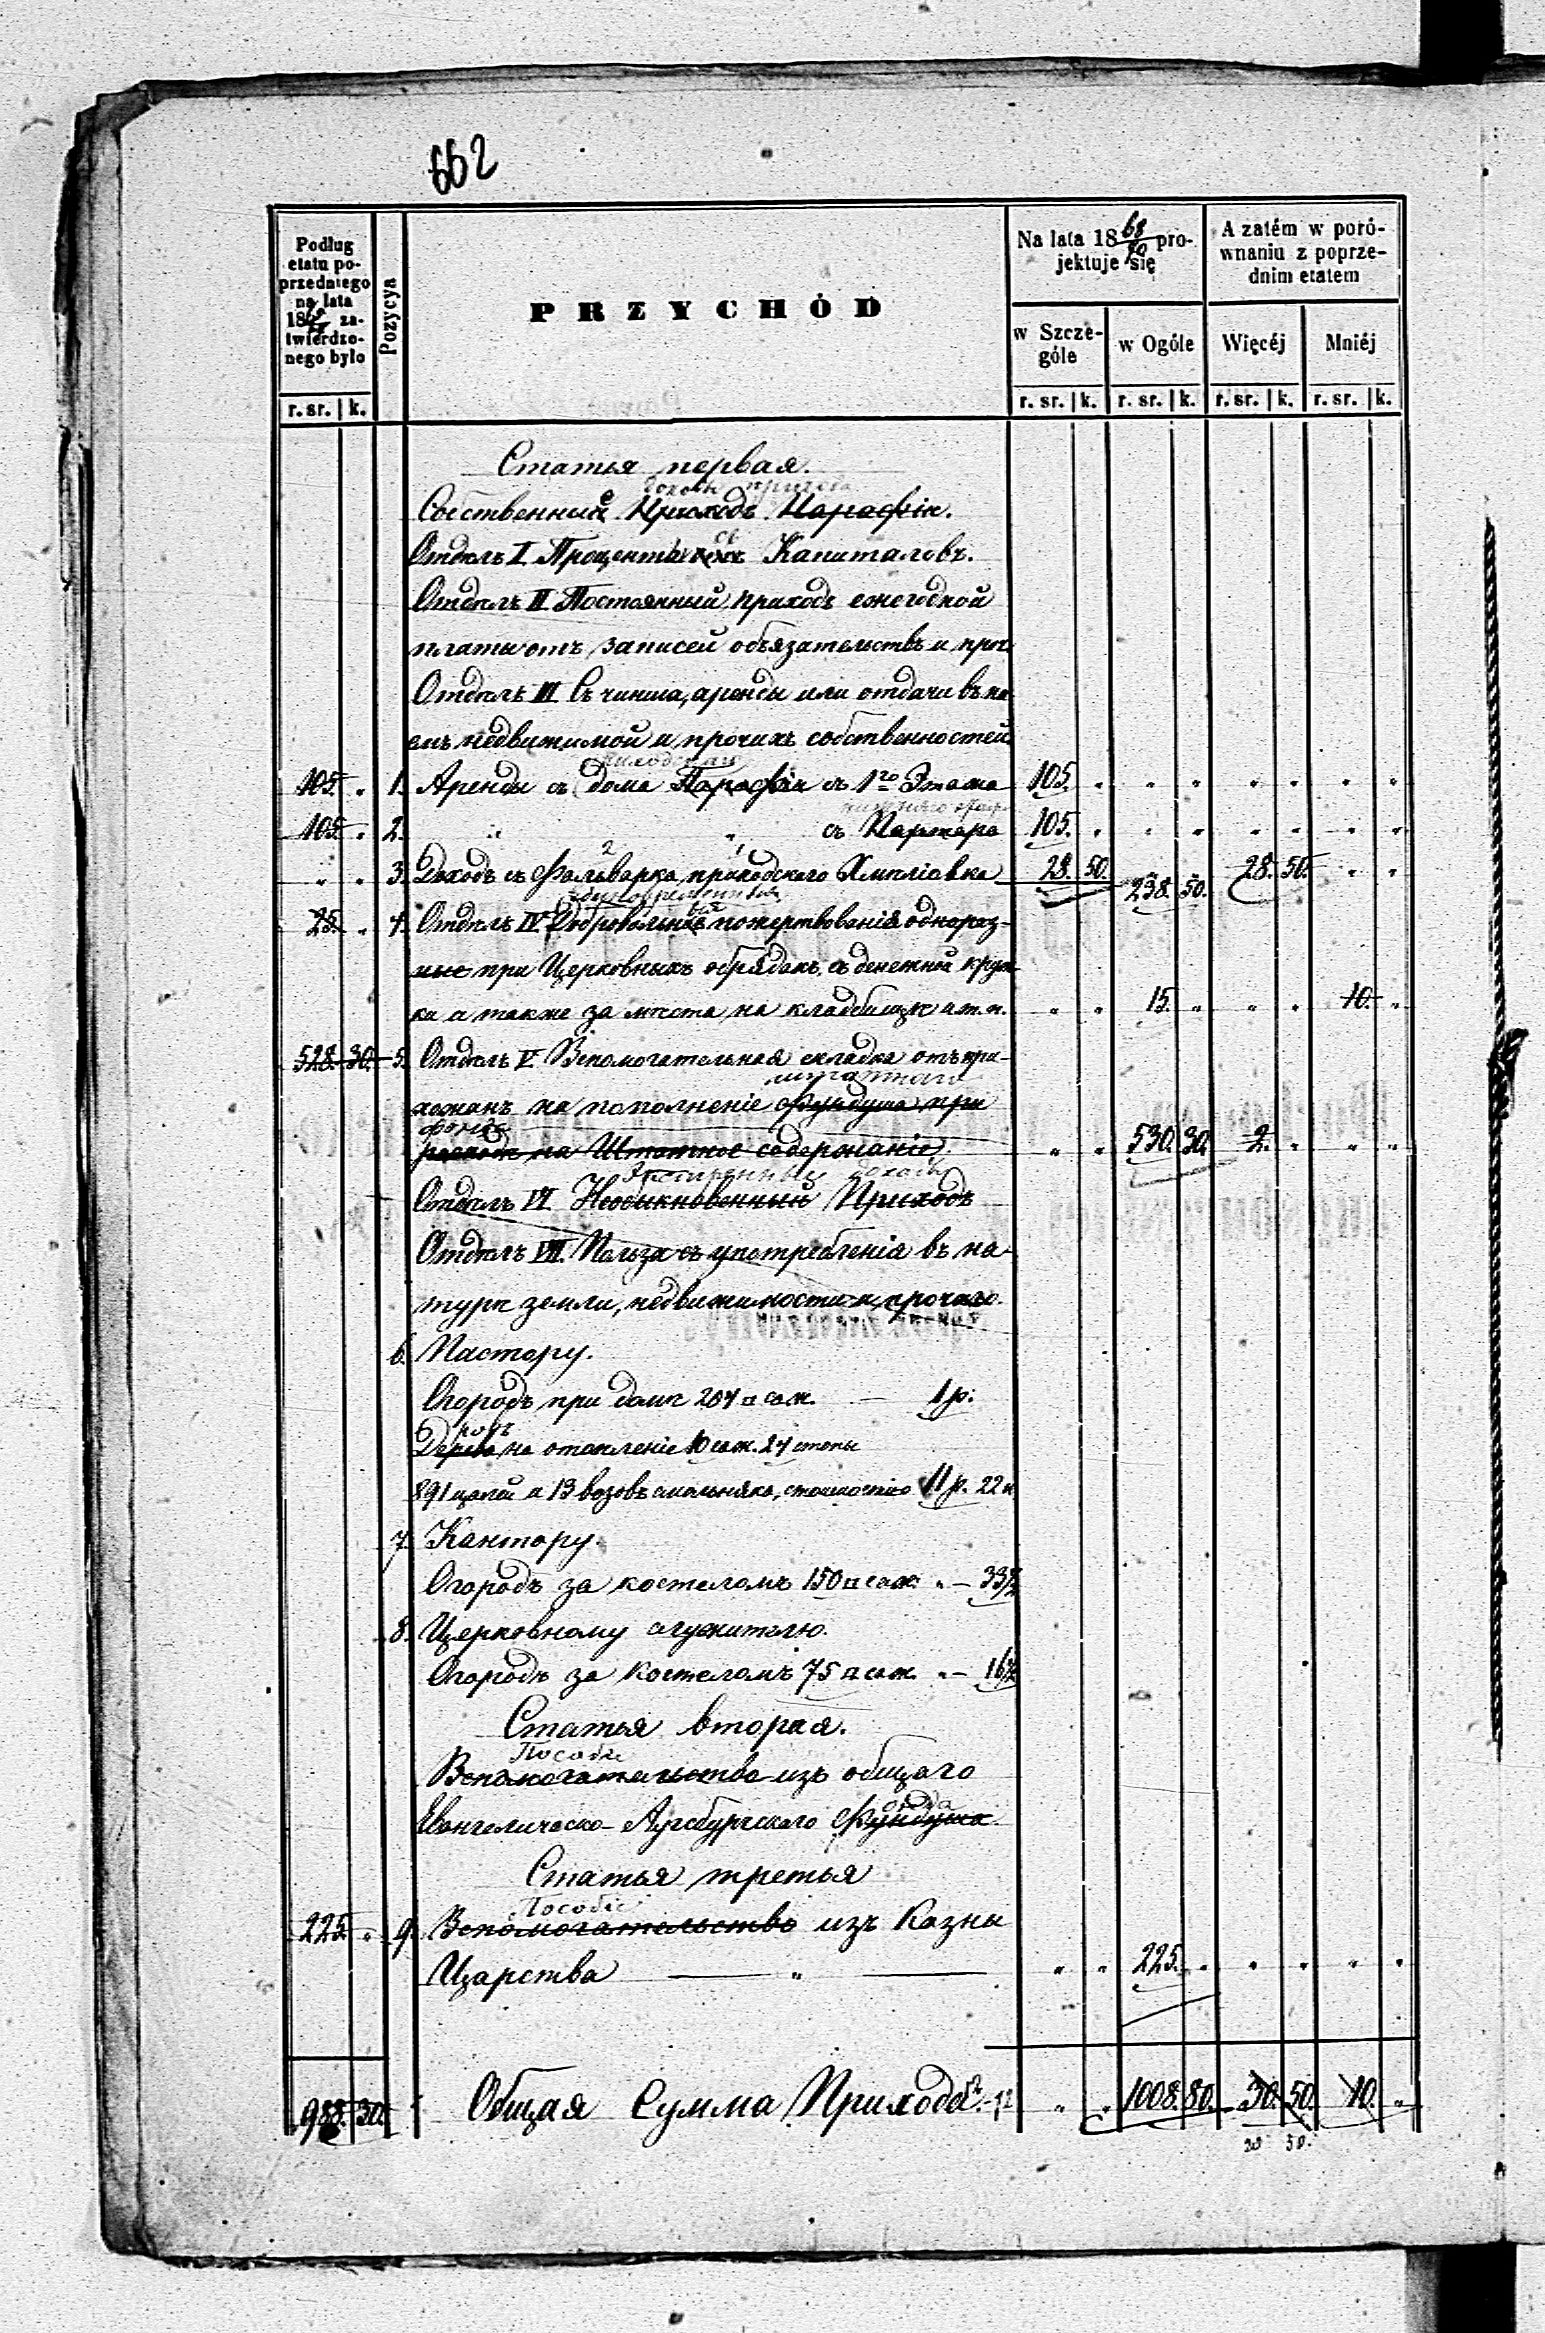 662
Podług etatu poprzedniego na lata 18 zatwierdzonego było
Pozycya
PRZYCHÓD
Na lata 18 68/70 projektuje się
w Szczególe
w Ogóle
A zatém w porównaniu z poprzednim etatem
Więcéj
Mniéj
r. sr. k. r. sr. k. r. sr. k. r. sr. k. r. sr. k.
Статья первая.
доходы прихода
Собственный Приходъ Парафіи.
Отдѣлъ I Проценты съ Капиталовъ.
Отдѣлъ II Постоянный приходъ ежегодной
платы отъ записей обязательствъ и проч
Отдѣлъ III Съ чинша, аренды или отдачи въ на
емъ недвижимой и прочихъ собственностей
105. " 1. Аренды съ дома Парафіи съ 1го Этажа 105. " " " " " " "
105. " 2. " " съ Партера 105. " " " " " " "
" " 3. Доходъ съ Фольварка приходскаго 28. 50. 238. 50. 28. 50. " "
25. " 4. Отдѣлъ IV Добровольныя пожертвованія однораз-
ные при Церковныхъ обрядахъ, съ денежной круж
ки а также за мѣста на кладбищѣ и т. п. " " 15. " " " 10. "
528. 30. 5. Отдѣлъ V Вспомогательная складка отъ при-
штатнаго
хожанъ на пополненіе Фундуша при
фонда
расходъ на Штатное содержаніе " " 530. 30. 2. " " "
доходы
Отдѣлъ VI Необыкновенный Приходъ
Отдѣлъ VII. Польза съ употребленія въ на-
турѣ земли, недвижимости и прочаго.
6. Пастору.
Огородъ при домѣ 204 □ саж. — 1 р:
Дерево на отопленіе 10 саж. 24 стопы
891 цалей и 13 возовъ смольняка, стоимостію 11 р. 22 к
7. Кантору.
Огородъ за костеломъ 150 □ саж. " — 33½
8. Церковному служителю.
Огородъ за костеломъ 75 □ саж. " — 16½
Статья вторая.
Пособіе
Вспомогательство изъ общаго
фонда
Евангелическо-Аугсбургскаго Фундуша.
Статья третья
Пособіе
225. " 9. Вспомогательство изъ Казны
Царства — " — " " 225. " " " " "
988. 30. Общая Сумма Прихода " " 1008. 80. 30. 50. 10. "
20 50.